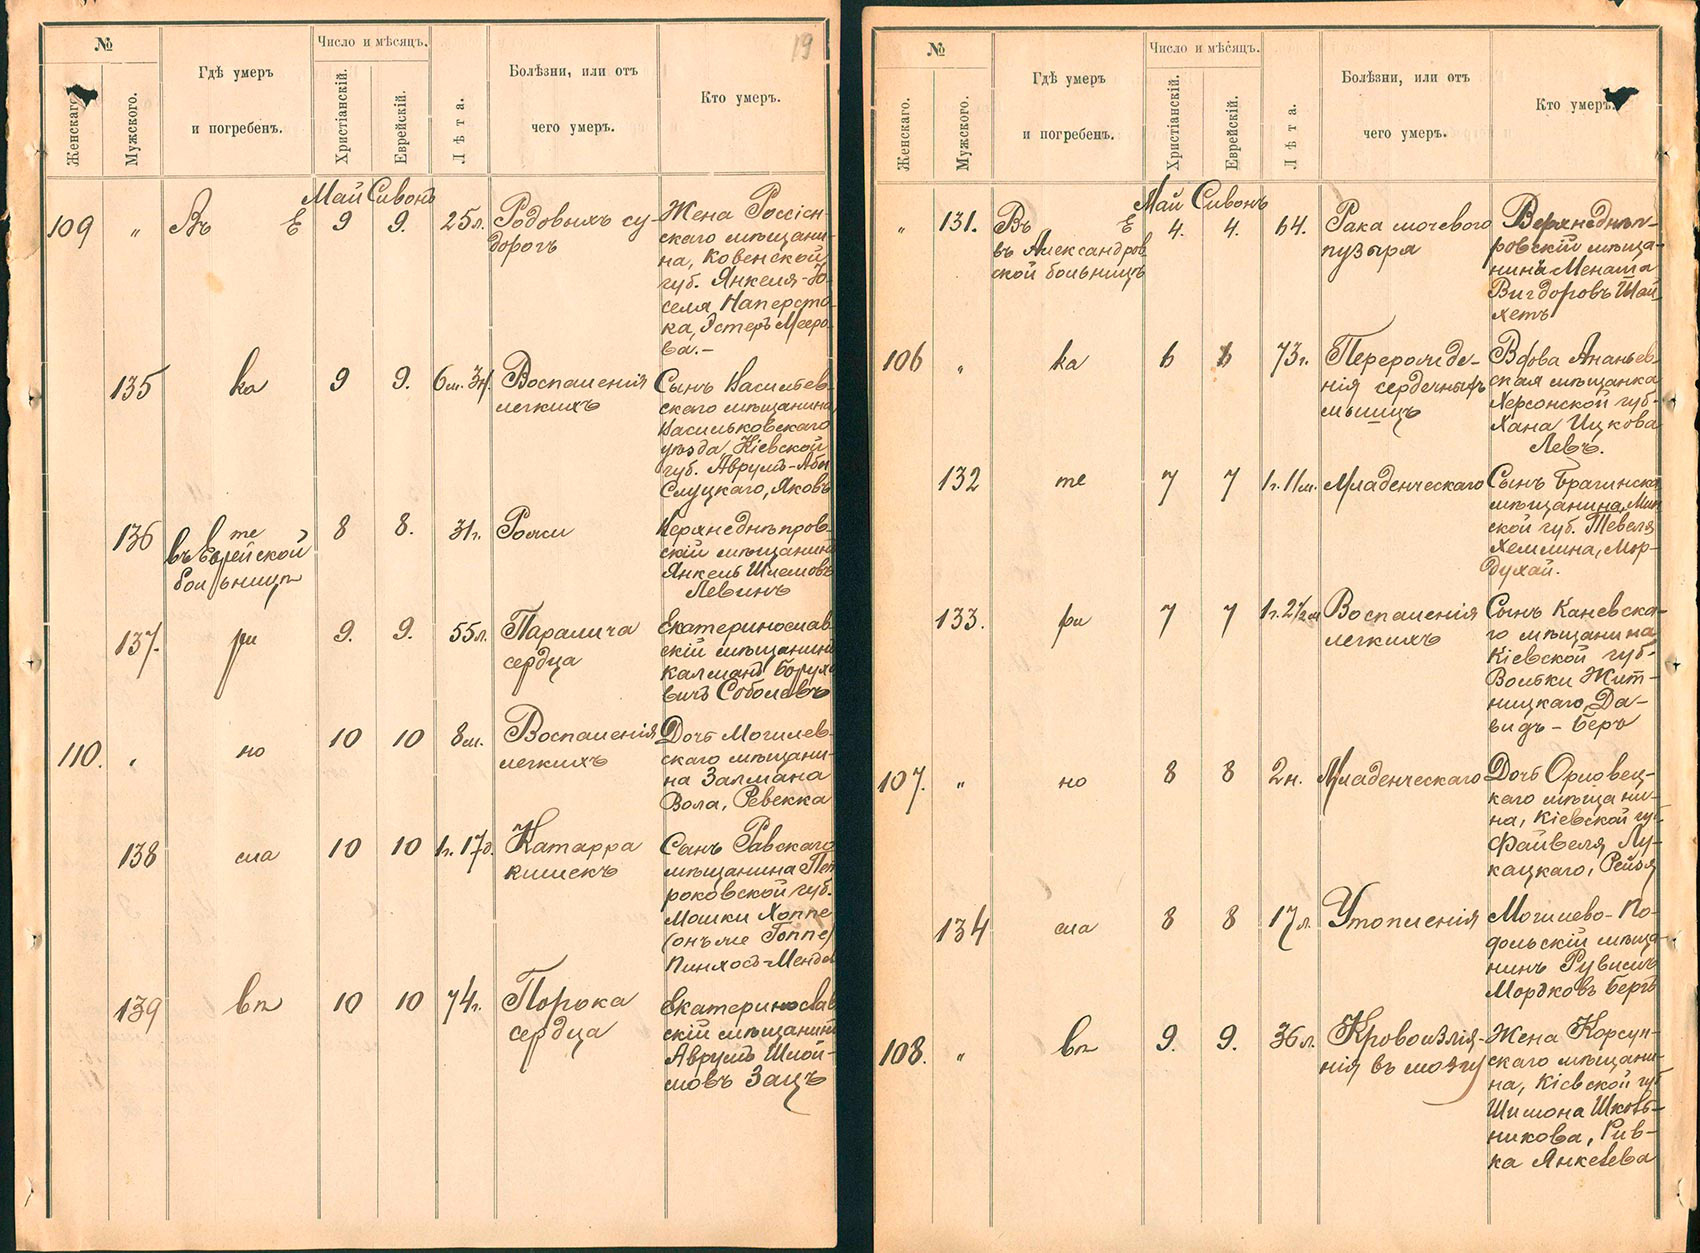 19
№
Женскаго.
Мужского.
Гдѣ умеръ
и погребенъ.
Число и мѣсяцъ.
Христіанскій.
Еврейскій.
Лѣта.
Болѣзни, или отъ
чего умеръ.
Кто умеръ.
Май Сивонъ
109 „ Въ Е 9 9. 25л. Родовыхъ су-
дорогъ
Жена Россіен-
скаго мѣщани-
на, Ковенской
губ. Янкеля-Іо-
селя Наперсто-
ка, Эстеръ Мееро-
ва.-
135 ка 9 9. 6м. 3н Воспаленія
легкихъ
Сынъ Васильев-
скаго мѣщанина
Васильковскаго
уѣзда, Кіевской
губ. Аврумъ-Абы
Слуцкаго, Яковъ
136 те 8 8. 31г. Рожи
въ Еврейской
больницѣ
Верхнеднѣпров-
скій мѣщанинъ
Янкель Шлемовъ
Левинъ
137. ри 9. 9. 55л. Паралича
сердца
Екатеринослав
скій мѣщанинъ
Калманъ Борухо
вичъ Соболевъ
110. „ но 10 10 8м. Воспаленія
легкихъ
Дочь Могилев-
скаго мѣщани-
на Залмана
Вола, Ревекка
138 сла 10 10 1г. 17д. Катарра
кишекъ
Сынъ Равскаго
мѣщанина Пет
роковской губ.
Мошки Хоппе
(онъ же Гоппе)
Пинхосъ-Мендель
139 вѣ 10 10 74г. Порока
сердца
Екатеринослав
скій мѣщанинъ
Аврумъ Шлой-
мовъ Зацъ
№
Женскаго.
Мужского.
Гдѣ умеръ
и погребенъ.
Число и мѣсяцъ.
Христіанскій.
Еврейскій.
Лѣта.
Болѣзни, или отъ
чего умеръ.
Кто умеръ.
Май Сивонъ
„ 131. Въ Е 4. 4. 64. Рака мочевого
въ Александров
ской больницѣ
пузыря
Верхнеднѣп-
ровскій мѣща-
нинъ Менаша
Вигдоровъ Шай-
хетъ
106 „ ка 6 6 73г. Перерожде-
нія сердечныхъ
мышцъ
Вдова Ананьев-
ская мѣщанка
Херсонской губ-
Хана Ицкова
Левъ.
132 те 7 7 1г. 11м. Младенческаго
Сынъ Брагинска
мѣщанина, Мин
ской губ. Тевеля
Хемлина, Мор-
духай.
133. ри 7 7 1г. 2½м Воспаленія
легкихъ
Сынъ Каневска-
го мѣщанина
Кіевской губ-
Вольки Жит-
ницкаго, Да-
видъ-Беръ
107. „ но 8 8 2н. Младенческаго
Дочь Орловец-
каго мѣщани-
на, Кіевской гу-
Файвеля Лу-
кацкаго, Рейзя
134 сла 8 8 17л. Утопленія
Могилево-По-
дольскій мѣща-
нинъ Рувинъ
Мордковъ Бергъ
108. „ вѣ 9. 9. 36л. Кровоизлія-
нія въ мозгу
Жена Корсун-
скаго мѣщани-
на, Кіевской губ
Шимона Школь-
никова, Рив-
ка Янкелева